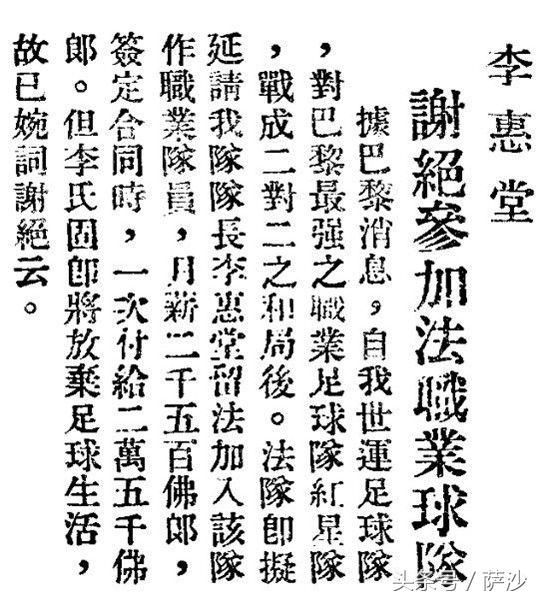 李惠堂
謝絕參加法職業球隊
據巴黎消息，自我世運足球隊
，對巴黎最强之職業足球隊紅星隊
，戰成二對二之和局後。法隊卽擬
延請我隊隊長李惠堂留法加入該隊
作職業隊員，月薪二千五百佛郎，
簽定合同時，一次付給二萬五千佛
郎。但李氏因卽將放棄足球生活，
故已婉詞謝絕云。
头条号/萨沙